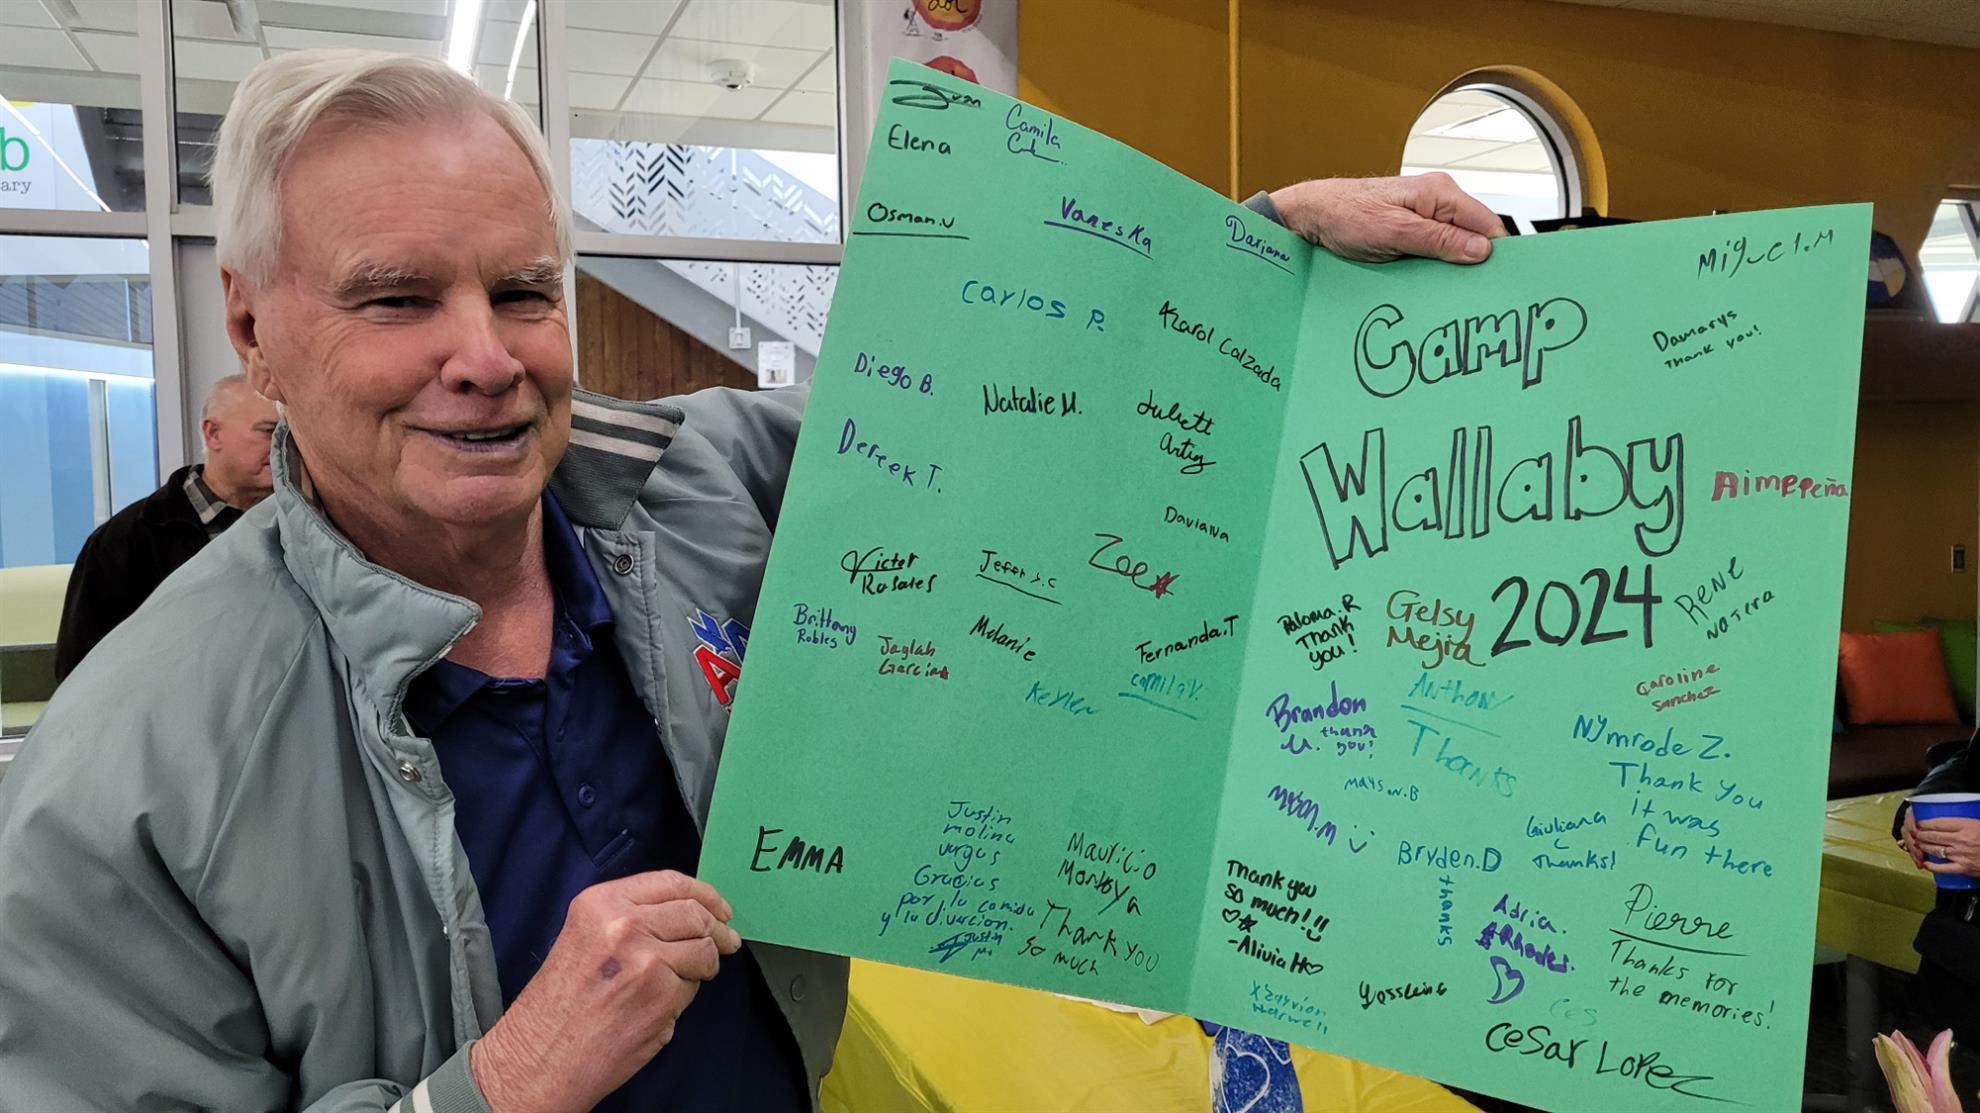 b
ary
Juan
Elena
Camila
Osman.V
Vaneska
Dariana
Carlos P.
Karol Calzada
Diego B.
Natalie M.
Juliett
Artiga
Dereek T.
Daviana
Zoe
Victor
Rosales
Jeffers.c
Brittany
Robles
Jaylah
Garcia
Melanie
Fernanda.T
Keyler
camila V.
EMMA
Justin
molina
vargas
Gracias
por la comida
y la diversion.
Justin
M.
Mauricio
Montoya
Thank you
so much
Miguel.M
Camp
Damarys
Thank you!
Wallaby
Aimee Peña
2024
Paloma.R
Thank
you!
Gelsy
Mejia
Rene
Najera
Caroline
Sanchez
Brandon
M. thank
you!
Anthony
Thanks
Nymrode Z.
Thank you
it was
fun there
Mayson.B
Giuliana
Thanks!
Bryden.D
thanks
Thank you
so much!
-Alivia H
Adria.
Rhodes.
Pierre
Thanks for
the memories!
Yossleine
Ces
Cesar Lopez